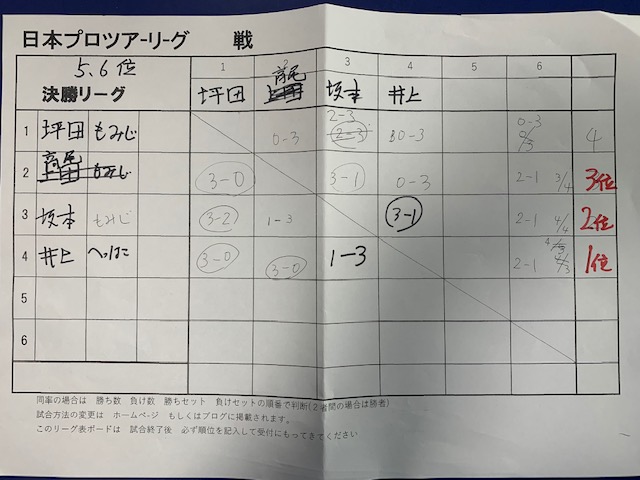 日本プロツアーリーグ 戦
5、6位
決勝リーグ 1 2 3 4 5 6
坪田 高尾 坂本 井上
1 坪田 もみじ 0-3 2-3 0-3 0-3 4
2 高尾 3-0 3-1 0-3 2-1 3/4 3位
3 坂本 もみじ 3-2 1-3 3-1 2-1 4/4 2位
4 井上 3-0 3-0 1-3 2-1 1位
5
6
同率の場合は 勝ち数 負け数 勝ちセット 負けセットの順番で判断(2者間の場合は勝者)
試合方法の変更は ホームページ もしくはブログに掲載されます。
このリーグ表ボードは 試合終了後 必ず順位を記入して受付にもってきてください